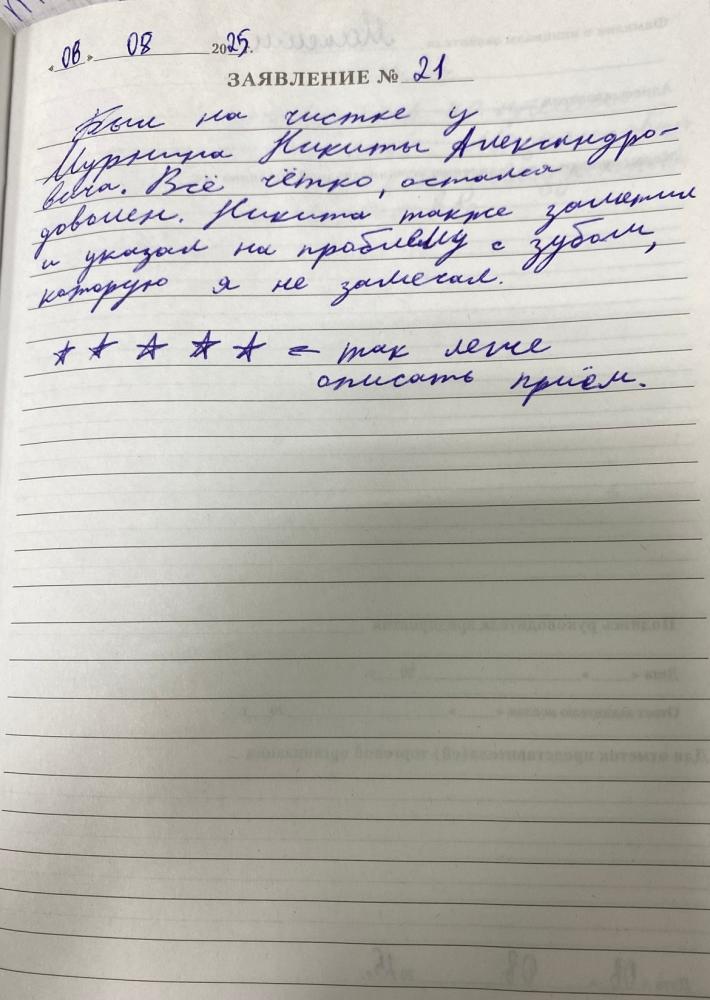 «08» 08 2025г.
ЗАЯВЛЕНИЕ № 21
Был на чистке у
Мурнина Никиты Александро-
вича. Всё чётко, остался
доволен. Никита также заметил
и указал на проблему с зубом,
которую я не замечал.
★ ★ ★ ★ ★ ← так легче
описать приём.